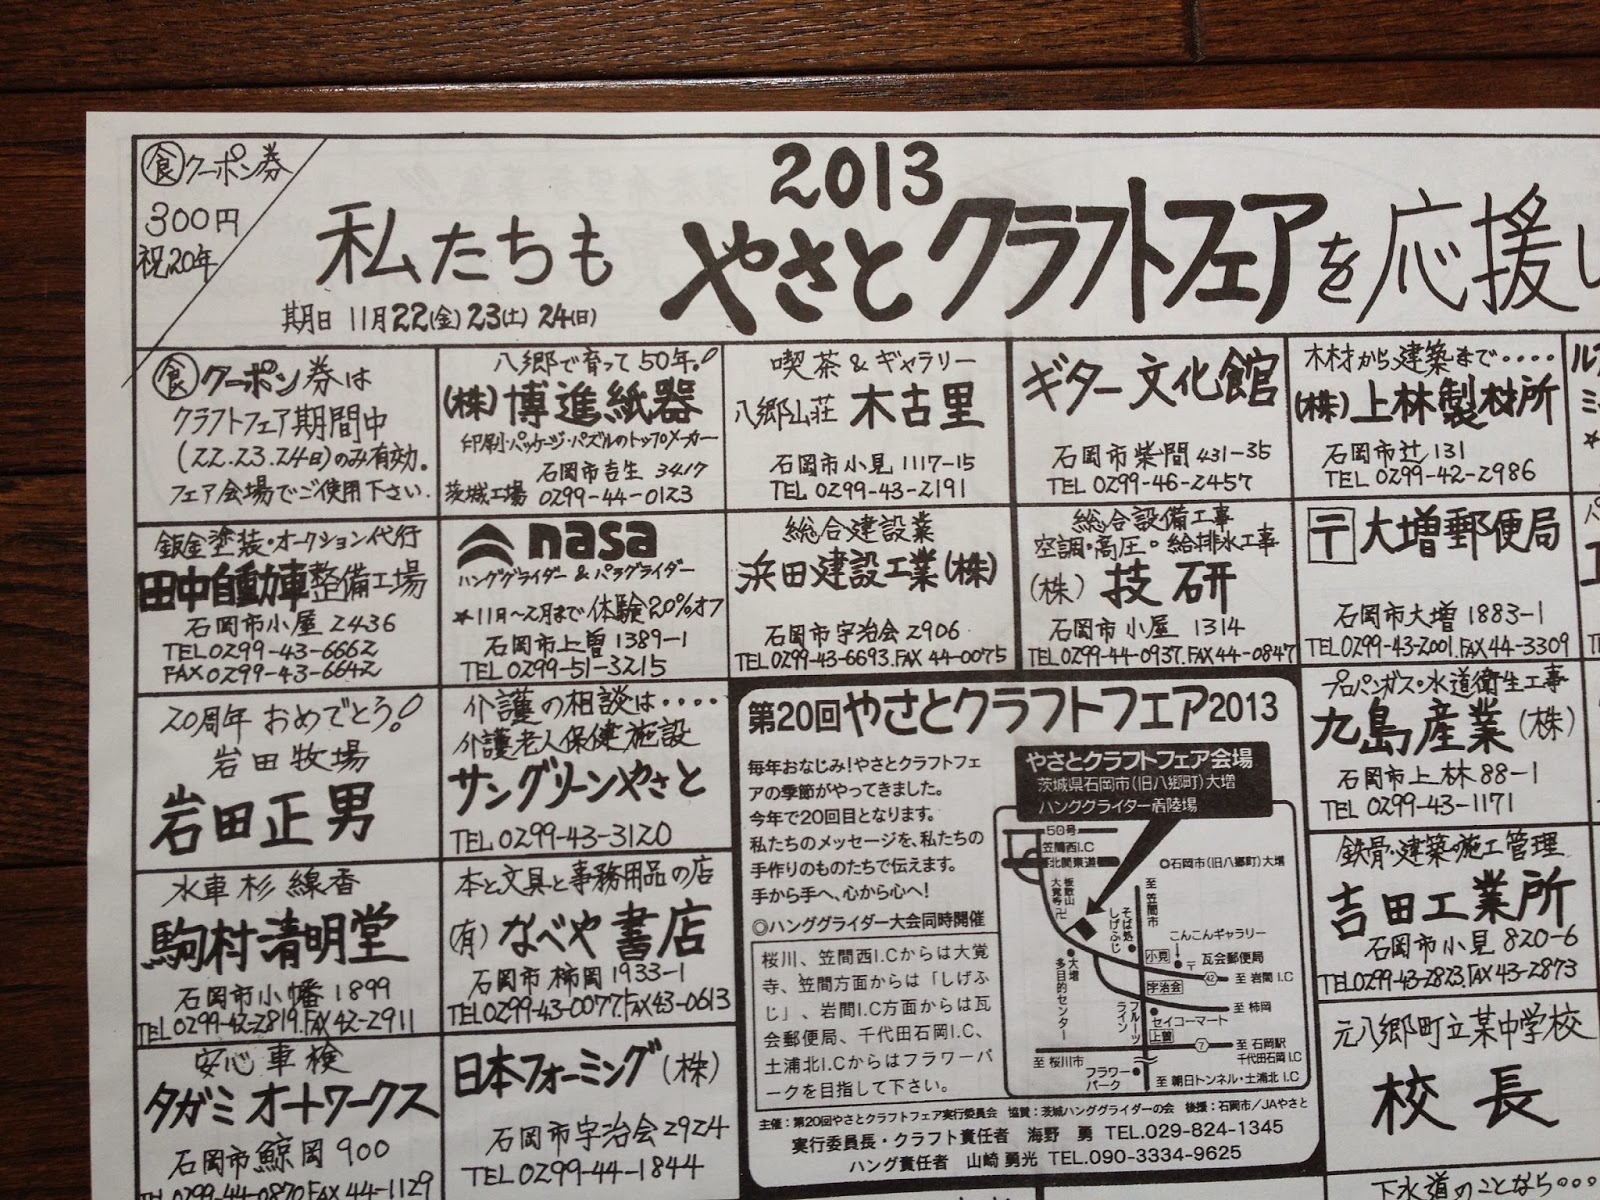 食クーポン券
300円
祝20年
2013
私たちも やさとクラフトフェアを応援し
期日 11月22(金)23(土)24(日)
食クーポン券は
クラフトフェア期間中
(22.23.24日)のみ有効。
フェア会場でご使用下さい.
八郷で育って50年!
(株)博進紙器
印刷・パッケージ・パズルのトップメーカー
石岡市吉生 3417
茨城工場 0299-44-0123
喫茶&ギャラリー
八郷山荘 木古里
石岡市小見 1117-15
TEL 0299-43-2191
ギター文化館
石岡市柴間 431-35
TEL 0299-46-2457
木材から建築まで・・・・
(株)上林製材所
石岡市辻 131
TEL 0299-42-2986
鈑金塗装・オークション代行
田中自動車整備工場
石岡市小屋 2436
TEL0299-43-6662
FAX0299-43-6642
nasa
ハンググライダー & パラグライダー
★11月〜2月まで体験20%オフ
石岡市上曽 1389-1
TEL 0299-51-3215
総合建設業
浜田建設工業(株)
石岡市宇治会 2906
TEL 0299-43-6693.FAX 44-0075
総合設備工事
空調・高圧・給排水工事
(株)技研
石岡市小屋 1314
TEL0299-44-0937.FAX44-0847
〒大増郵便局
石岡市大増 1883-1
TEL0299-43-2001.FAX 44-3309
20周年おめでとう!
岩田牧場
岩田正男
介護の相談は・・・・
介護老人保健施設
サングリーンやさと
TEL 0299-43-3120
第20回やさとクラフトフェア2013
毎年おなじみ!やさとクラフトフェ
アの季節がやってきました。
今年で20回目となります。
私たちのメッセージを、私たちの
手作りのものたちで伝えます。
手から手へ、心から心へ!
◎ハンググライダー大会同時開催
桜川、笠間西I.Cからは大覚
寺、笠間方面からは「しげふ
じ」、岩間I.C方面からは瓦
会郵便局、千代田石岡I.C、
土浦北I.Cからはフラワーパ
ークを目指して下さい。
やさとクラフトフェア会場
茨城県石岡市(旧八郷町)大増
ハンググライダー着陸場
50号
笠間西I.C
北関東道
◎石岡市(旧八郷町)大増
板敷山
大覚寺卍
至笠間市
そば処
しげふじ
こんこんギャラリー
小見
〒瓦会郵便局
大増
多目的センター
42
至 岩間 I.C
宇治会
フルーツ
ライン
至 柿岡
セイコーマート
上曽
7
至 石岡駅
千代田石岡 I.C
至 桜川市
フラワー
パーク
至 朝日トンネル・土浦北 I.C
主催:第20回やさとクラフトフェア実行委員会 協賛:茨城ハンググライダーの会 後援:石岡市/JAやさと
実行委員長・クラフト責任者 海野 勇 TEL.029-824-1345
ハング責任者 山崎勇光 TEL.090-3334-9625
プロパンガス・水道衛生工事
九島産業(株)
石岡市上林 88-1
TEL 0299-43-1171
水車杉線香
駒村清明堂
石岡市小幡 1899
TEL0299-42-2819.FAX 42-2911
本と文具と事務用品の店
(有)なべや書店
石岡市柿岡 1933-1
TEL 0299-43-0077.FAX43-0613
鉄骨・建築の施工管理
吉田工業所
石岡市小見 820-6
TEL 0299-43-2823.FAX 43-2873
安心車検
タガミオートワークス
石岡市鯨岡 900
TEL 0299-44-0870 FAX 44-1129
日本フォーミング(株)
石岡市宇治会 2924
TEL 0299-44-1844
元八郷町立某中学校
校長
下水道のことなら・・・